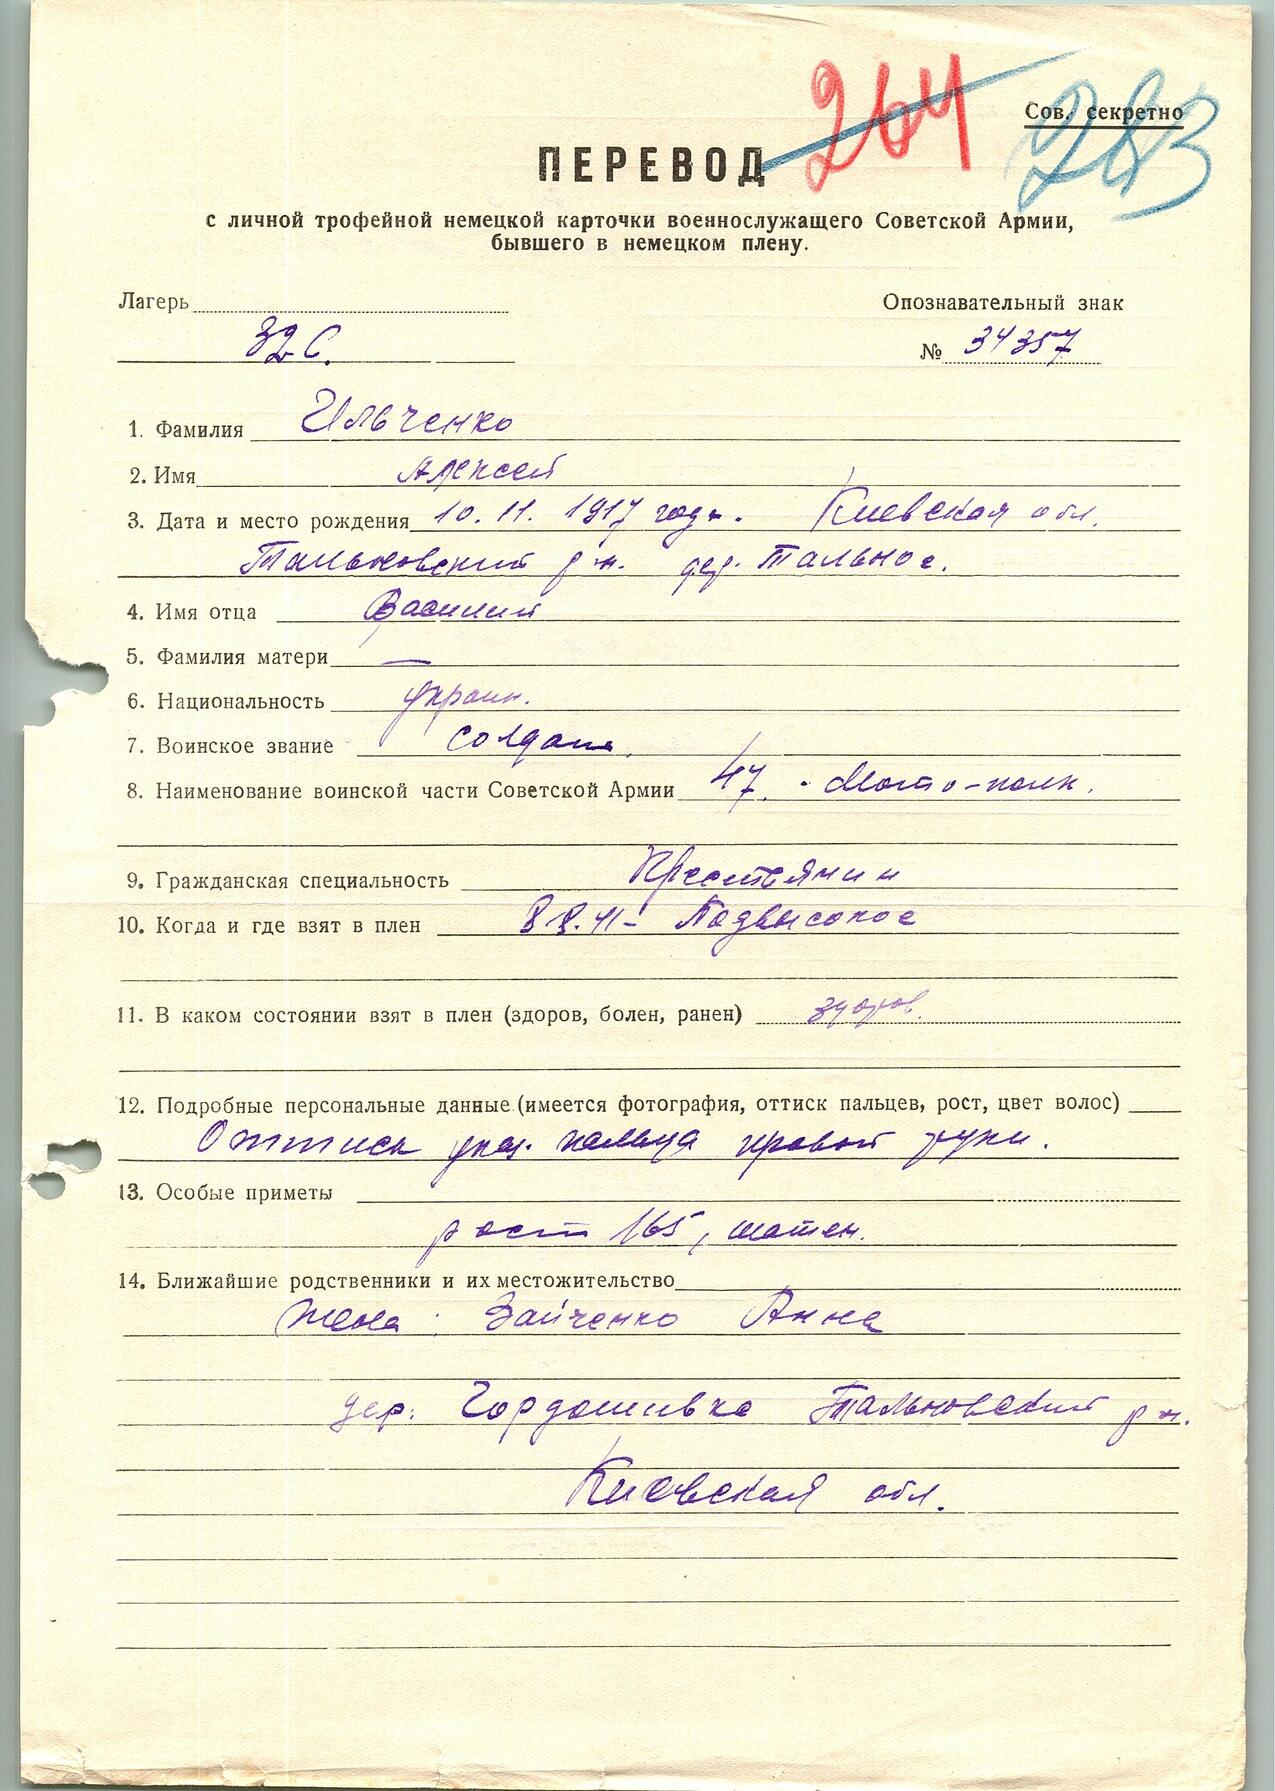 264
Сов. секретно
283
ПЕРЕВОД
с личной трофейной немецкой карточки военнослужащего Советской Армии,
бывшего в немецком плену.
Лагерь
Опознавательный знак
32 С.
№ 34357
1. Фамилия Ильченко
2. Имя Алексей
3. Дата и место рождения 10.11.1917 года. Киевская обл.
Тальновский р-н. дер. Тальное.
4. Имя отца Василий
5. Фамилия матери —
6. Национальность украин.
7. Воинское звание солдат.
8. Наименование воинской части Советской Армии 47. Мото-полк.
9. Гражданская специальность Крестьянин
10. Когда и где взят в плен 8.8.41 - Подвысокое
11. В каком состоянии взят в плен (здоров, болен, ранен) здоров.
12. Подробные персональные данные (имеется фотография, оттиск пальцев, рост, цвет волос)
Оттиск указ. пальца правой руки.
13. Особые приметы
рост 165, шатен.
14. Ближайшие родственники и их местожительство
Жена: Зайченко Анна
дер. Гордашивка Тальновский р-н.
Киевская обл.